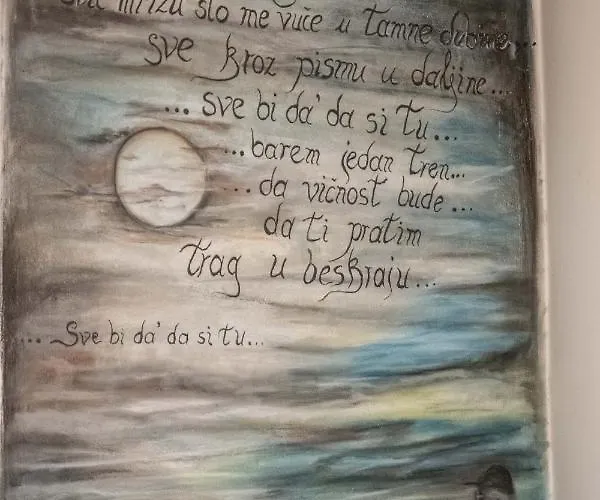 mrižu što me vuče u tamne dubine...
sve kroz pismu u daljine...
... sve bi da' da si tu...
...barem jedan tren...
...da vičnost bude...
da ti pratim
trag u beskraju...
... Sve bi da' da si tu...